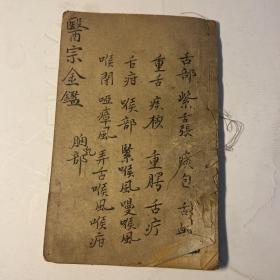 舌部 紫舌張 痰包 舌衄
重舌 痰核 重腭 舌疔
舌疳 喉部 緊喉風 慢喉風
喉閉 啞瘴風 弄舌喉風 喉疳
胸乳部
醫宗金鑑